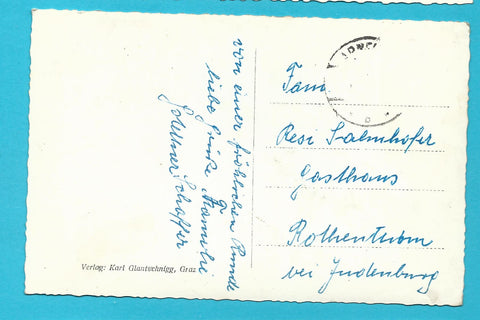 von einer fröhlichen Runde
liebe Grüße Familie
Schaffer
Fam
Resi Salmhofer
Gasthaus
Rothenturm
bei Judenburg
Verlag: Karl Glantschnigg, Graz